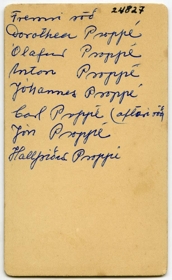 24827
Fremri röð
Dorothea Proppé
Ólafur Proppé
Anton Proppé
Jóhannes Proppé
Carl Proppé (aftari röð
Jón Proppé
Hallfríður Proppé